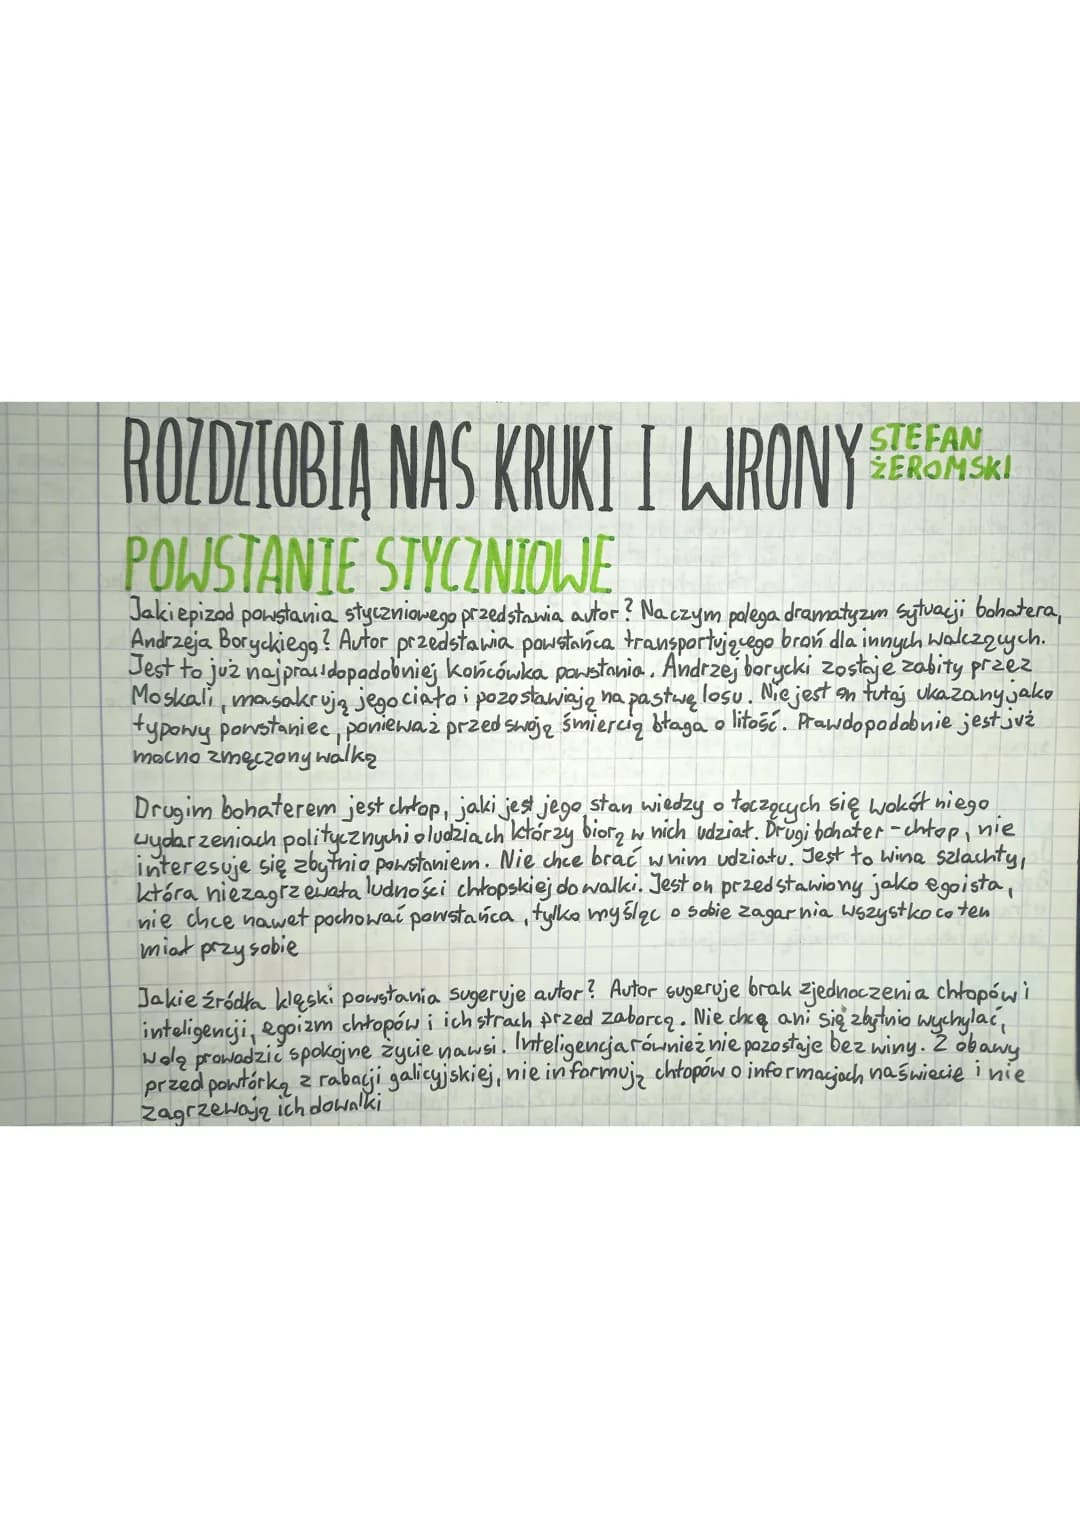 ROZDZIOBIĄ NAS KRUKI I WRONY STEFAN ŻEROMSKI
POWSTANIE STYCZNIOWE
Jaki epizod powstania styczniowego przedstawia autor? Na czym polega dramatyzm sytuacji bohatera,
Andrzeja Boryckiego? Autor przedstawia powstańca transportującego broń dla innych walczących.
Jest to już najprawdopodobniej końcówka powstania. Andrzej borycki zostaje zabity przez
Moskali, masakrują jego ciało i pozostawiają na pastwę losu. Nie jest on tutaj ukazany jako
typowy powstaniec, ponieważ przed swoją śmiercią błaga o litość. Prawdopodobnie jest już
mocno zmęczony walką
Drugim bohaterem jest chłop, jaki jest jego stan wiedzy o toczących się wokół niego
wydarzeniach politycznych i o ludziach którzy biorą w nich udział. Drugi bohater - chłop, nie
interesuje się zbytnio powstaniem. Nie chce brać w nim udziału. Jest to wina szlachty,
która nie zagrzewała ludności chłopskiej do walki. Jest on przedstawiony jako egoista,
nie chce nawet pochować powstańca, tylko myśląc o sobie zagarnia wszystko co ten
miał przy sobie
Jakie źródła klęski powstania sugeruje autor? Autor sugeruje brak zjednoczenia chłopów i
inteligencji, egoizm chłopów i ich strach przed zaborcą. Nie chcą ani się zbytnio wychylać,
wolą prowadzić spokojne życie na wsi. Inteligencja również nie pozostaje bez winy. Z obawy
przed powtórką z rabacji galicyjskiej, nie informują chłopów o informacjach na świecie i nie
zagrzewają ich do walki